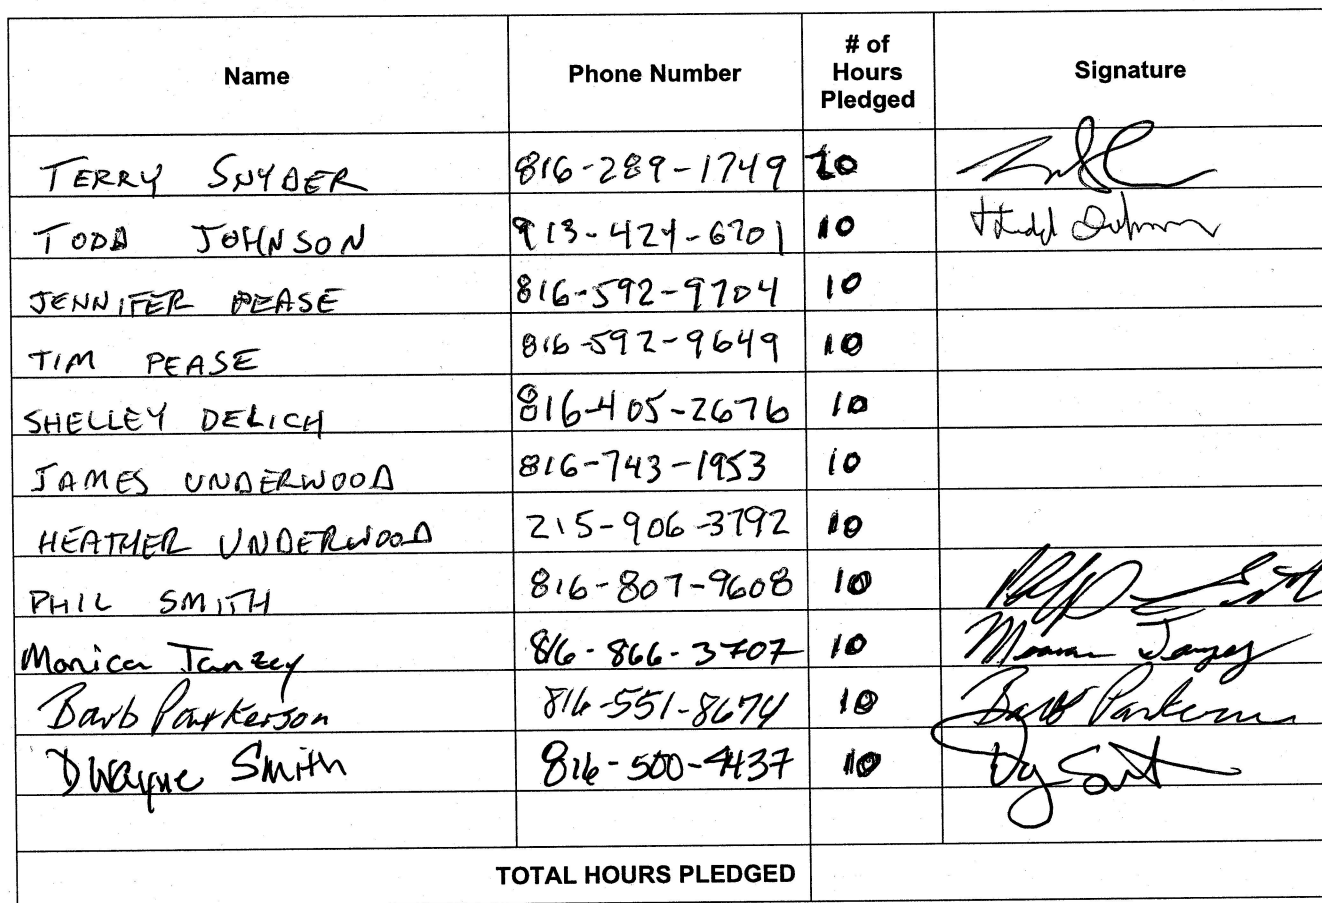 Name Phone Number # of Hours Pledged Signature
TERRY SNYDER 816-289-1749 10
TODD JOHNSON 913-424-6701 10 Todd Johnson
JENNIFER PEASE 816-592-9704 10
TIM PEASE 816-592-9649 10
SHELLEY DELICH 816-405-2676 10
JAMES UNDERWOOD 816-743-1953 10
HEATHER UNDERWOOD 215-906-3792 10
PHIL SMITH 816-807-9608 10
Monica Tanzey 816-866-3707 10 Monica Tanzey
Barb Parkerson 816-551-8674 10 Barb Parkerson
Dwayne Smith 816-500-4437 10
TOTAL HOURS PLEDGED